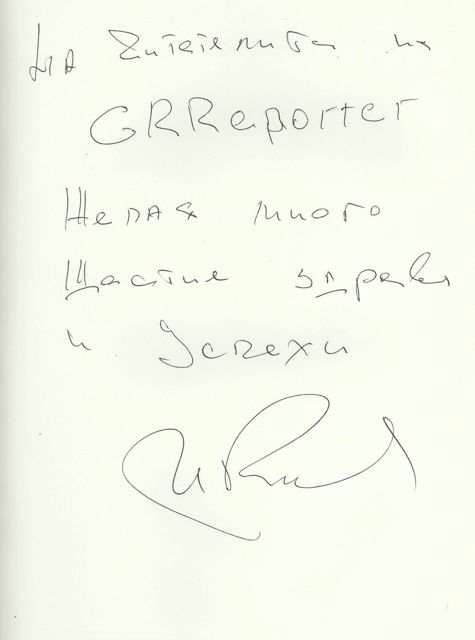 На читателите на
GRReporter
Желая много
Щастие здраве
и Успехи